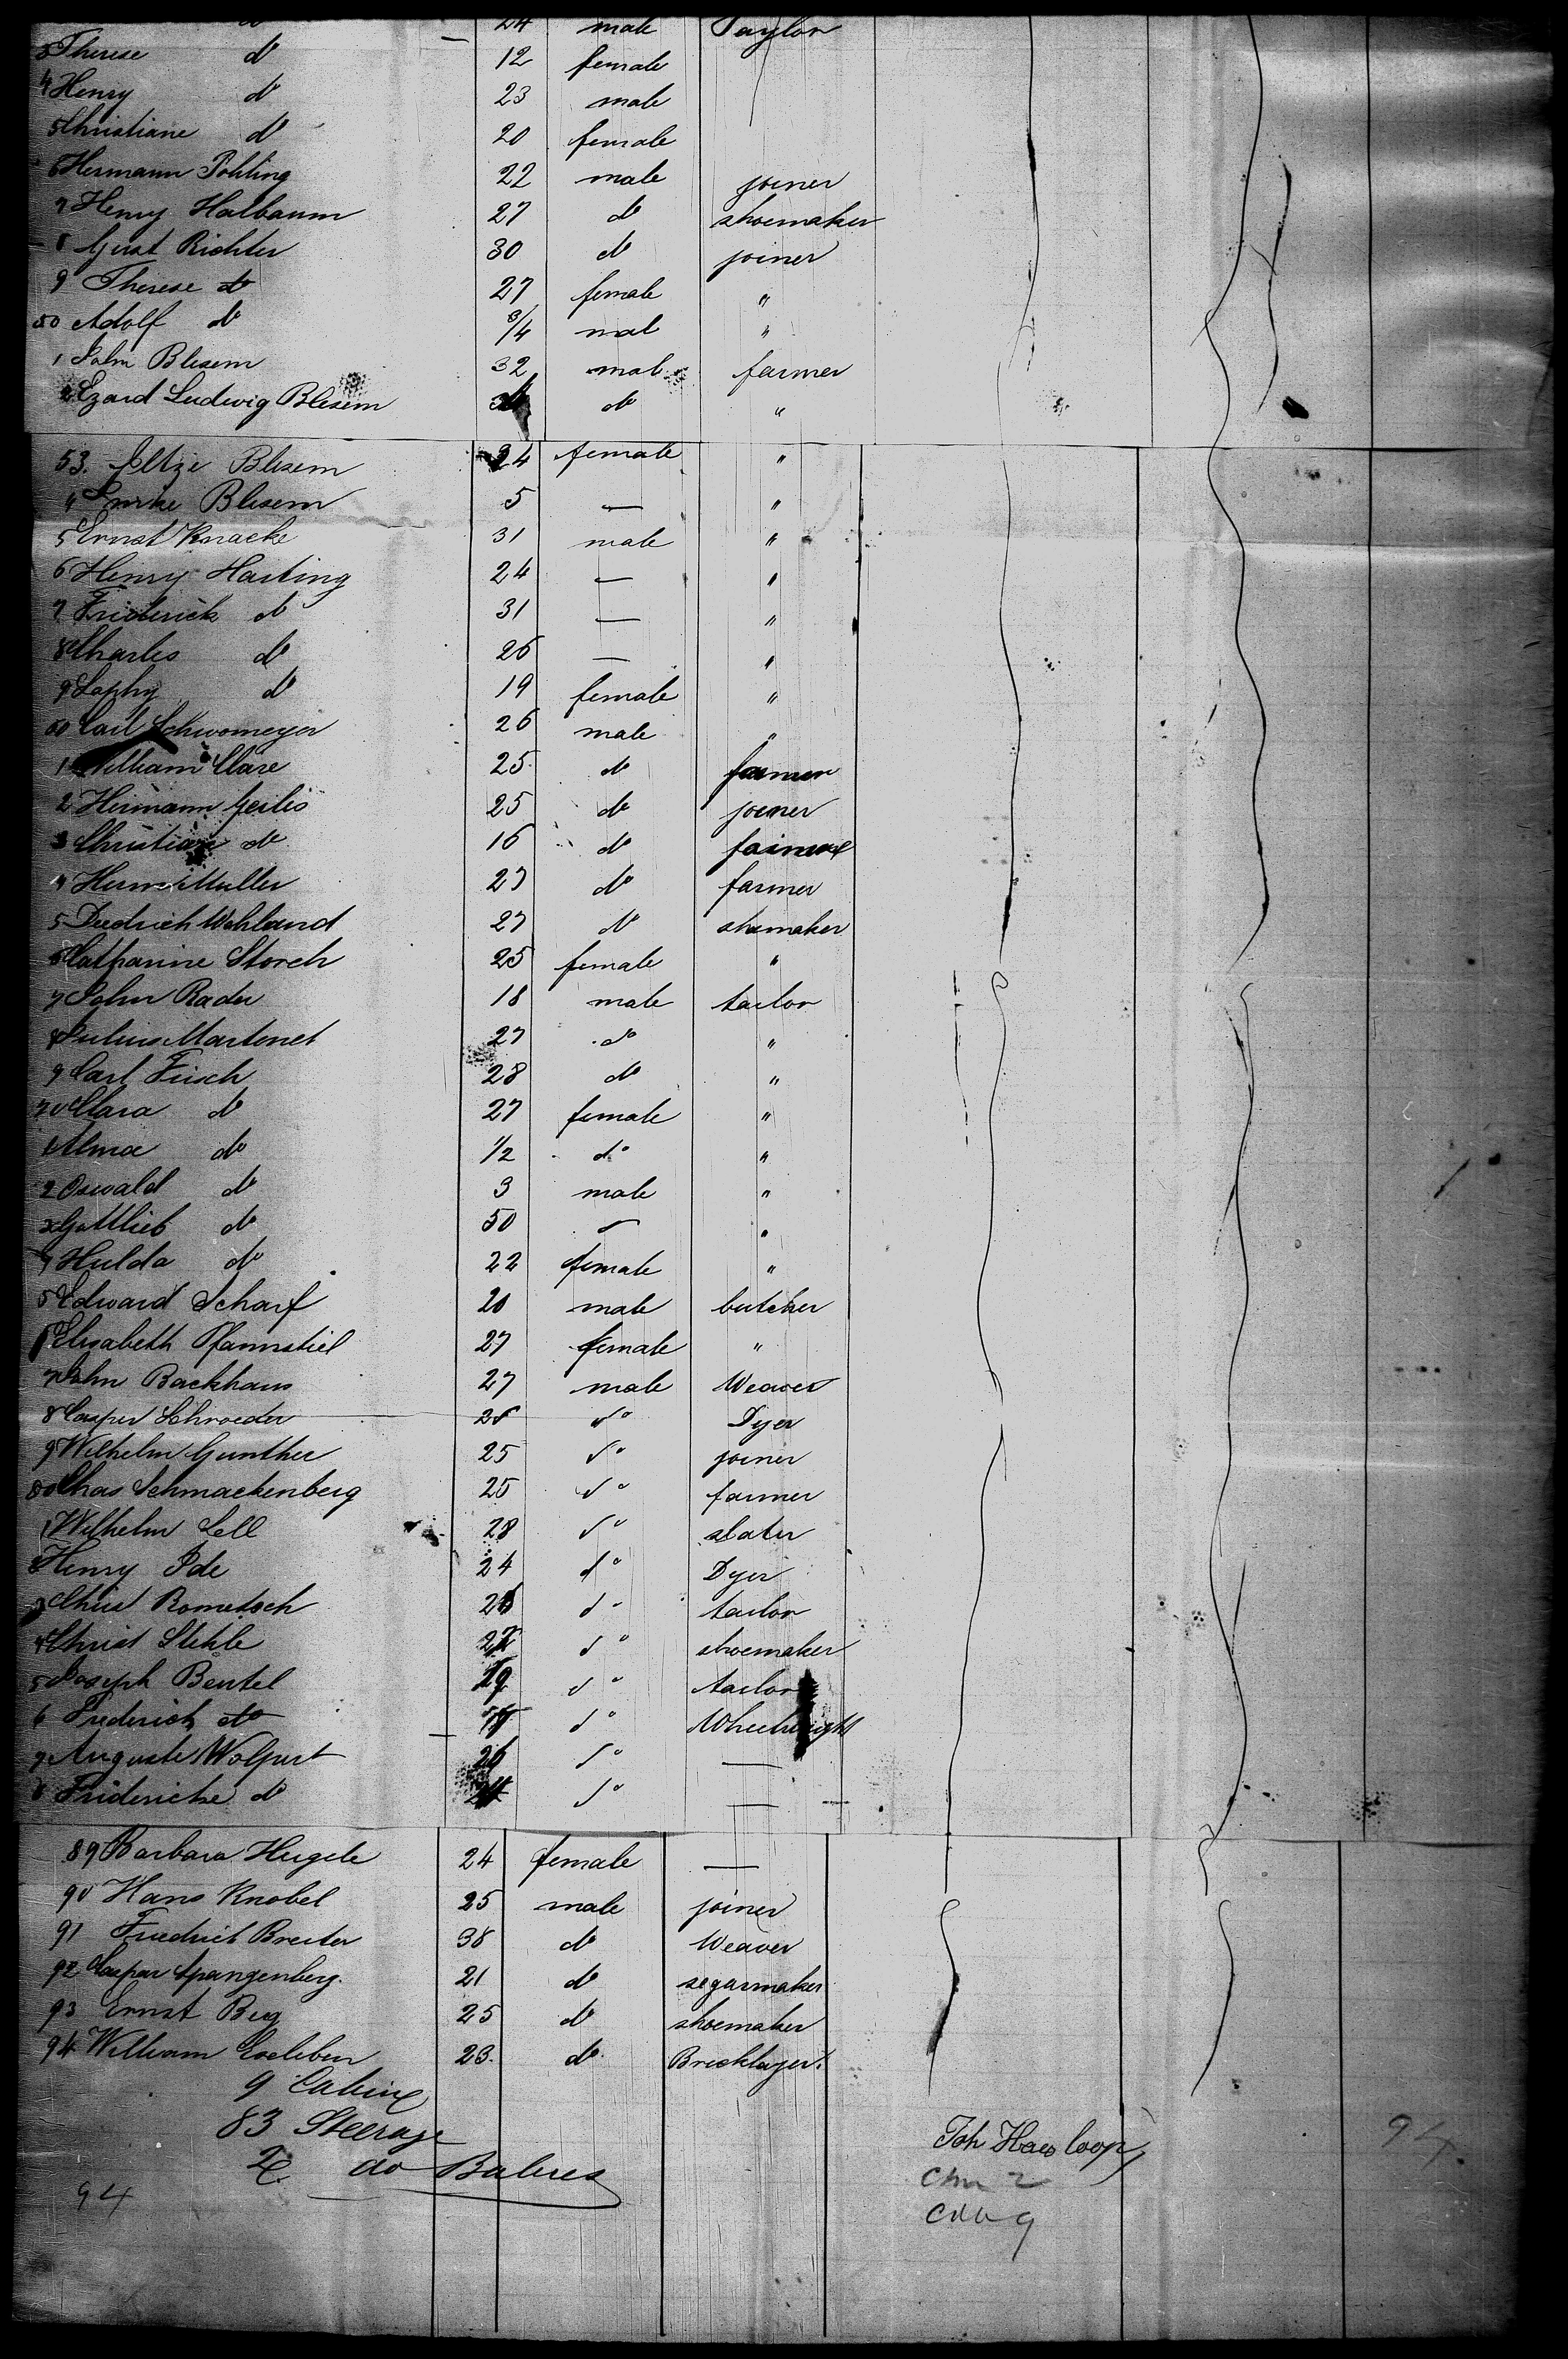 do 24 male Taylor
3 Therese do 12 female
4 Henry do 23 male
5 Christiane do 20 female
6 Hermann Pohling 22 male joiner
7 Henry Halbaum 27 do shoemaker
8 Gust Richter 30 do joiner
9 Therese do 27 female "
50 Adolf do 3/4 mal "
1 John Blesem 32 mal farmer
2 Ezard Ludwig Blesem do "
53. Eltze Blesem 24 female "
" Blesem 5 — "
5 Ernst Knacke 31 male "
6 Henry Harting 24 — "
7 Friderick do 31 — "
8 Charles do 26 — "
9 Sophy do 19 female "
60 Carl Schwomeyer 26 male "
1 William Clare 25 do farmer
2 Hermann Gerlis 25 do joiner
3 Christian do 16 do
4 Herm Muller 27 do farmer
5 Diedrich Wohland 27 do shumaker
6 Catharine Storch 25 female "
7 John Rader 18 male tailor
8 Julius Martenet 27 do "
9 Carl Frisch 28 do "
70 Clara do 27 female "
1 Alma do 1/2 do "
2 Oswald do 3 male "
3 Gottlieb do 50 "
4 Hulda do 22 female "
5 Edward Scharf 20 male butcher
6 Elisabeth Pfannstiel 27 female "
7 John Backhaus 27 male Weaver
8 Casper Schroeder do Dyer
9 Wilhelm Gunther 25 do joiner
80 Chas Schmackenberg 25 do farmer
1 Wilhelm Sell 28 do slater
2 Henry Ide 24 do Dyer
3 Christ Rometsch do tailor
4 Christ Stehle do shoemaker
5 Joseph Beutel 19 do tailor
6 Frederich do do Wheelwright
7 Auguste Wolpert 26 do —
8 Fridericke do do —
89 Barbara Hugele 24 female —
90 Hans Knobel 25 male joiner
91 Friedrich Breiter 38 do Weaver
92 Caspar Spangenberg. 21 do segarmaker
93 Ernst Berg 25 do shoemaker
94 William 23. do Bricklayer.
9 Cabine
83 Steerage
2 do Babies
94
Joh
94